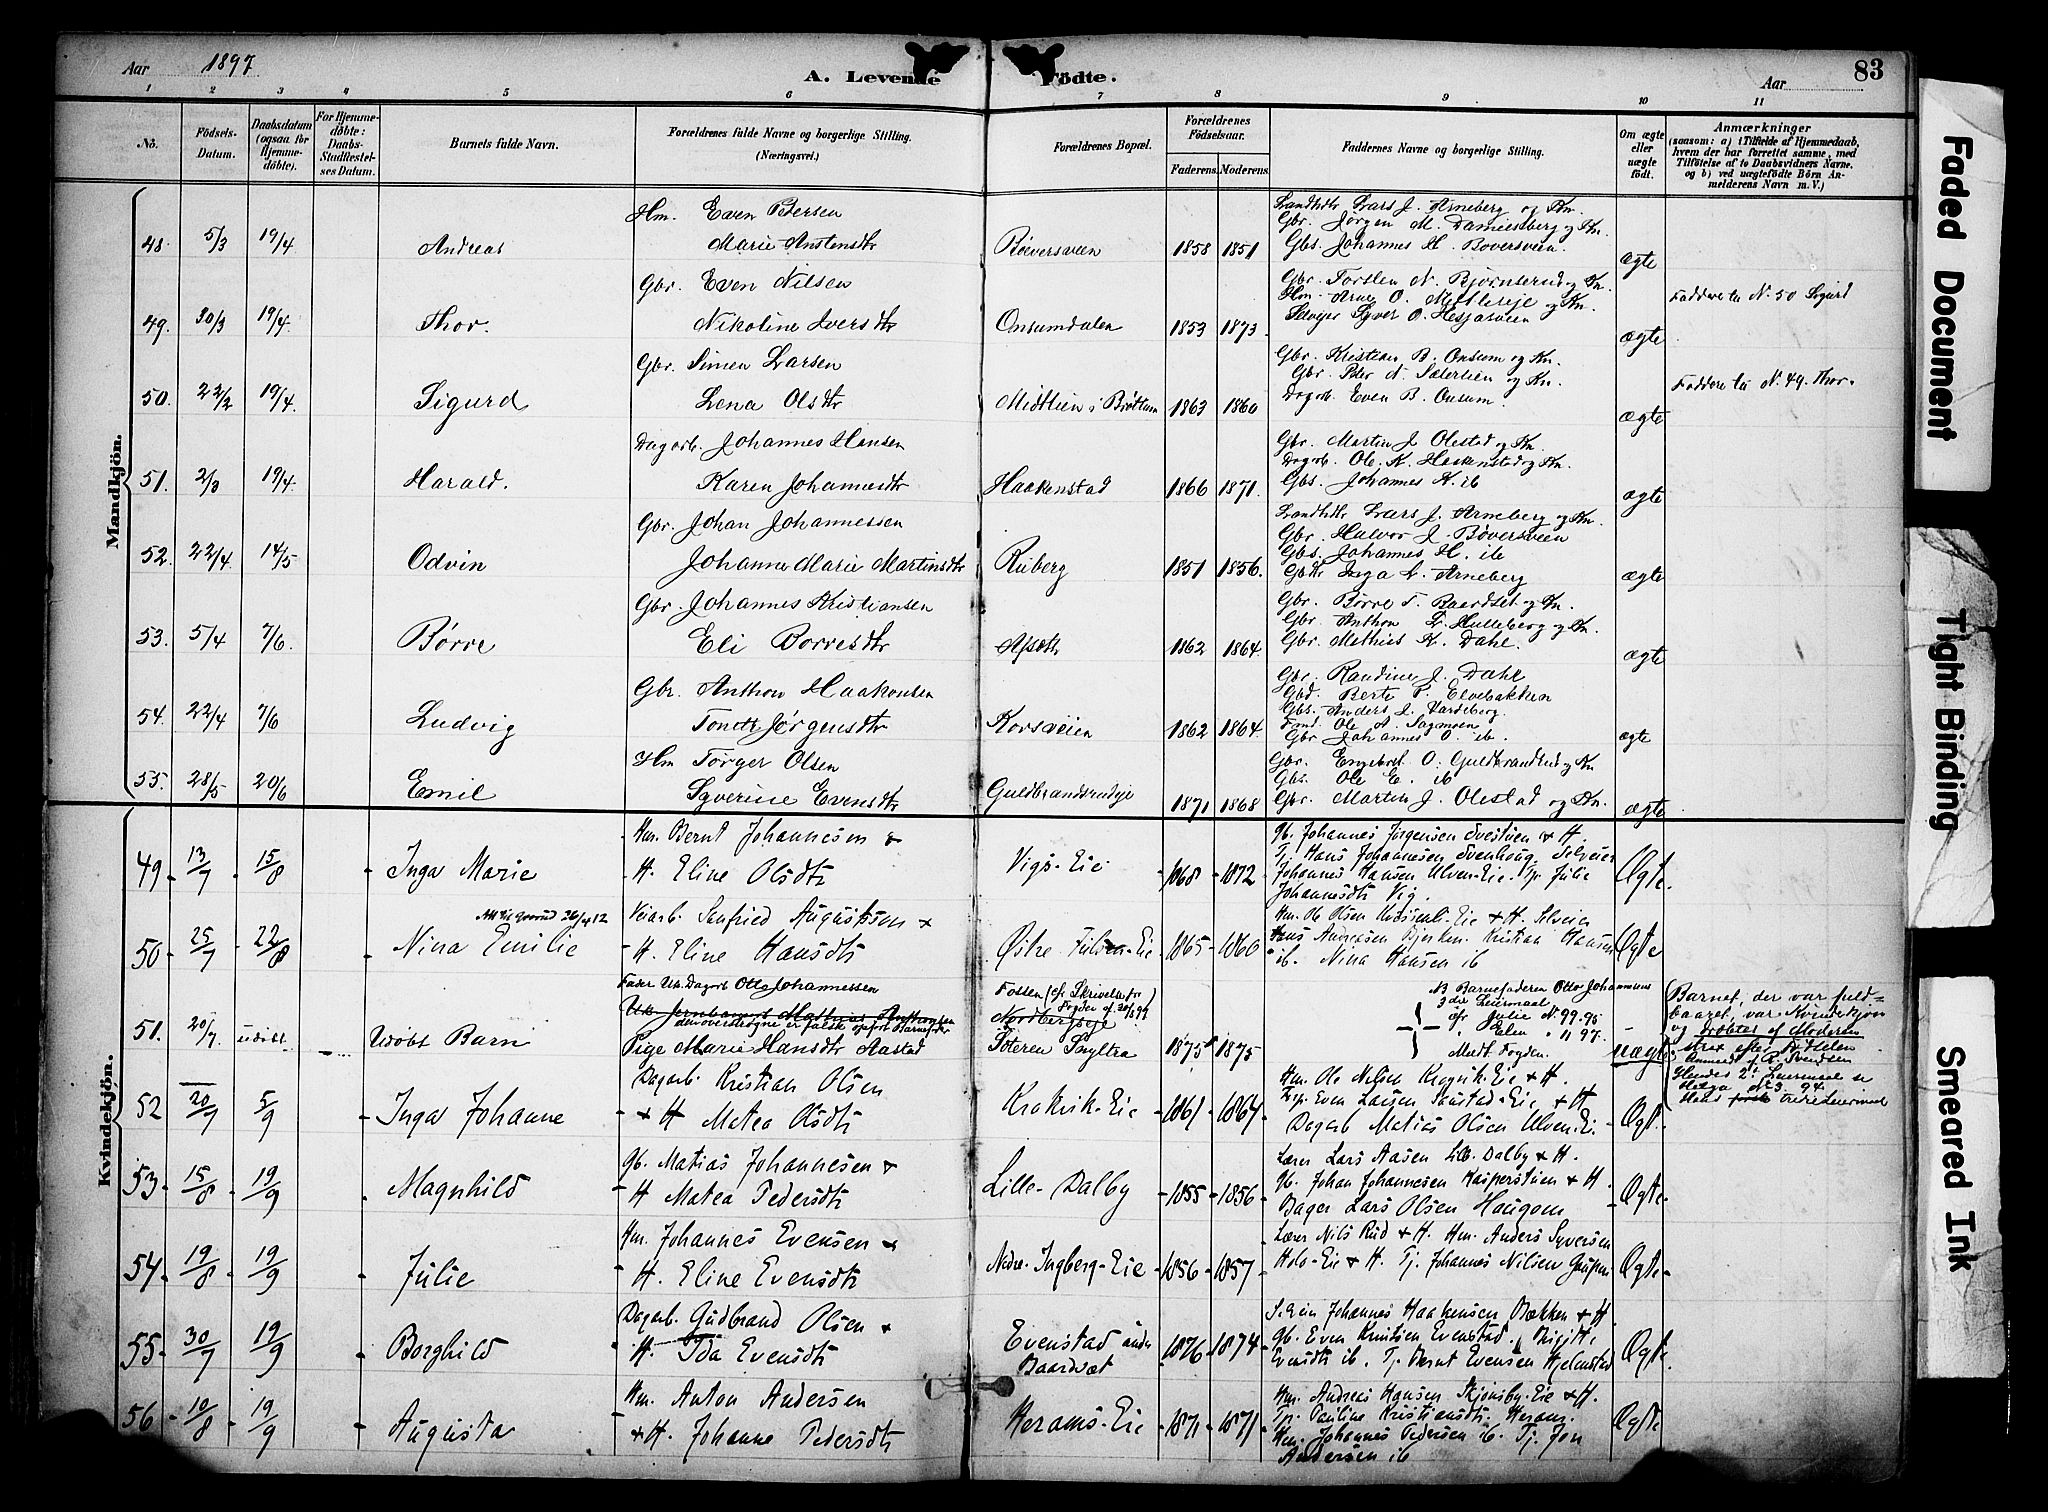 Aar 1897
A. Levende Födte.
Aar
83
1 2 3 4 5 6 7 8 9 10 11
No.
Födsels-Datum.
Daabsdatum (ogsaa for Hjemme-döbte).
For Hjemme-döbte: Daabs-Stadfæstel-ses Datum.
Barnets fulde Navn.
Forældrenes fulde Navne og borgerlige Stilling. (Næringsvei.)
Forældrenes Bopæl.
Forældrenes Födselsaar.
Faderens. Moderens.
Faddernes Navne og borgerlige Stilling.
Om ægte eller uægte födt.
Anmærkninger
(saasom: a) i Tilfælde af Hjemmedaab, hvem der har forrettet samme, med Tilföielse af to Daabsvidners Navne. og b) ved uægtefödte Börn An-melderens Navn m. V.)
Mandkjön.
Hm. Even Pedersen
Landhdlr Lars J. Arneberg og Kn.
Gbr. Jørgen M. og Kn.
48. 5/3 19/4 Andreas Marie Anstensdtr Bøversveen 1858 1851 Gbs. Johannes H. Boversveen. ægte
Gbr. Even Nilsen
Gbr. Torsten N. og Kn.
Hm. Arne O. og Kn.
Faddere til N. 50 Sigurd
49. 30/3 19/4. Thor. Nikoline Iversdtr Onsumdalen 1853 1873. Syver O. Hesjasveen ægte
Gbr. Simen Larsen
Gbr. Kristian B. Onsum og Kn.
Gbr. Peter N. og Kn.
Faddere til N. 49. Thor.
50. 22/2 19/4. Sigurd Lena Olsdtr Midtlien i Brøttum 1863 1860 Dagarb. Even B. Onsum. ægte
Dagarb. Johannes Hansen
Gbr. Martin J. Olestad og Kn.
Dagarb. Ole K. Haakenstad og Kn.
51. 2/3 19/4. Harald. Karen Johannesdtr Haakenstad 1866 1871. Gbs. Johannes K. ib ægte
Gbr. Johan Johannessen
Landhdlr Lars J. Arneberg og Kn.
Gbr. Halvor J. Bøversveen
Gbs. Johannes H. ib
52. 22/4. 14/5 Odvin Johanne Marie Martinsdtr Ruberg 1851 1856. Inga L. Arneberg ægte
Gbr. Johannes Kristiansen
Gbr. Børre T. Baardset og Kn.
Gbr. Anthon L. Hulleberg og Kn.
53. 5/4 7/6. Børre Eli Borresdtr 1862 1864. Gbr. Mathias K. Dahl. ægte
Gbr. Anthon Haakonsen
Gbr. Randine J. Dahl
Gbd. Berte P. Elvebakken
Gbs. Anders J. Vardeberg.
54. 22/4 7/6 Ludvig Jørgensdtr Korsveien 1862 1864. Ole A. Sagmoen
Gbr. Johannes O. ib. ægte
Hm Torger Olsen
Gbr. Engebret O. og Kn
Gbs. Ole E. ib
55. 28/5 20/6 Emil Syverine Evensdtr Guldbrandsrudeje 1871 1868 Gbr. Martin J. Olestad og Kn. ægte
Kvindekjön.
Hm. Bernt Johannesen &
Gb. Johannes Jørgensen & H.
Tj. Hans Johannesen Svenhoug, Selveier
49 13/7 15/8 Inga Marie H. Eline Olsdtr Vigs-Eie 1868 1872 Johannes Hansen Ulven-Eie. Tp. Julie Ægte
Johannesdtr Vig.
26/4 12
Veiarb. Augustson &
Hm. Ole Olsen Eie & H. Selveier
50 25/7 22/8 Nina Emilie H. Eline Hansdtr Østre Eie 1865 1860 Hans Andreasen Bjerke. Kristian Hansen Ægte
ib. Nina Hansen ib
Fader Uk. Dagarb Otto Johannessen
Uk. Jernbanearb Mathias Anthonsen
denoverstrøgne er falsk
Fossen (cfr Skrivelse fra Fogden af 20/1 99
Nordbergseje
NB Barnefaderen Otto Johannesens
3die Leiermaal
cfr Julie N. 99. 95
" Elen " 11 97.
Medt. Fogden.
51. 20/7 udøbt Udøbt Barn Pige Marie Hansdtr Aastad 1875 1875 uægte
Barnet, der var fuldbaaret, var Kvindekjön og dræbtes af Moderen strax efter Födselen
Anmeldt af R. Svendsen
Hendes 2det Leiermaal se Helga No 3. 94.
Hans første tredie Leiermaal
Dagarb. Kristian Olsen
Hm. Ole Nilsen Eie & H.
52 20/7 5/9 Inga Johanne & H Matea Olsdtr Krokvik-Eie 1861 1864 Even Larsen Eie & H Ægt.
Dagarb Matias Olsen Ulven-Ei.
Gb. Matias Johannesen &
Lærer Lars Aasen Lille Dalby & H.
53 15/8 19/9 Magnhild H Matea Pedersdtr Lille-Dalby 1855 1856 Gb. Johan Johannesen & H. Ægte
Bager Lars Olsen Haugom
Hm. Johannes Evensen &
Lærer Nils Rud & H. Hm. Anders Syversen
54 19/8 19/9 Julie H. Eline Evensdtr Nedre-Ingberg-Eie 1856 1857 Eie & H. Tj. Johannes Nilsen Ægte
Dagarb. Gudbrand Olsen &
Johannes Haakensen Bækken & H.
55 30/7 19/9 Borghild H. Ida Evensdtr Evenstad under Baardset 1876 1874 Gb. Even Evenstad. Ægte
Evensdtr ib. Tj. Bernt Evensen Hjelmstad
Hm. Anton Andersen
Hm. Andreas Hansen Skjønsby-Eie & H.
56 10/8 19/9 Augusta & H. Johanne Pedersdtr Herams-Eie 1871 1871 Tp. Pauline Kristiansdtr. Heram. Ægte
Hm. Johannes Pedersen ib. Tj. Jon
Andersen ib
Faded Document
Tight Binding
Smeared Ink